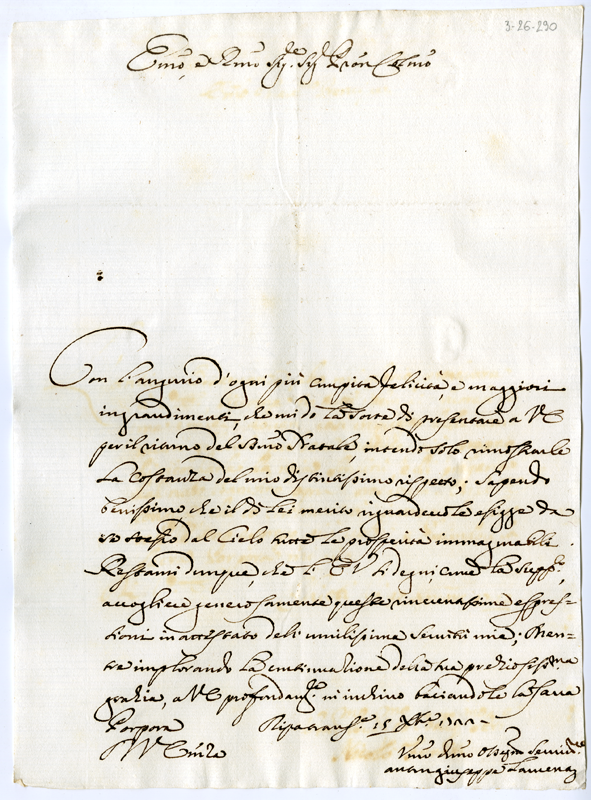 3-26-290
Emo, e Rmo Sig.re Sig.r Pron Colmo
Con l'augurio d'ogni più compita felicità, e maggiori
ingrandimenti, che mi do la sorte di presentare a VE
per il ritorno del Smo Natale, intendo solo rimostrarle
La Costanza del mio distintissimo rispetto; Sapendo
benissimo che il di Lei merito riguardevole esigge da
se stesso dal Cielo tutte le prosperità immaginabili.
Restami dunque, che l'E.V. si degni, come la supp.co,
accogliere generosamente queste riverentissime espres-
sioni in attestato dell'umilissima Servitù mia; Men-
tre implorando la continuazione della sua preziosissima
grazia, a VE profondam.te m'inchino baciandole la Sacra
Porpora Ripatrans.e 15 Xbre
Di V. Emza
Umo Dmo Obligmo Servid.re